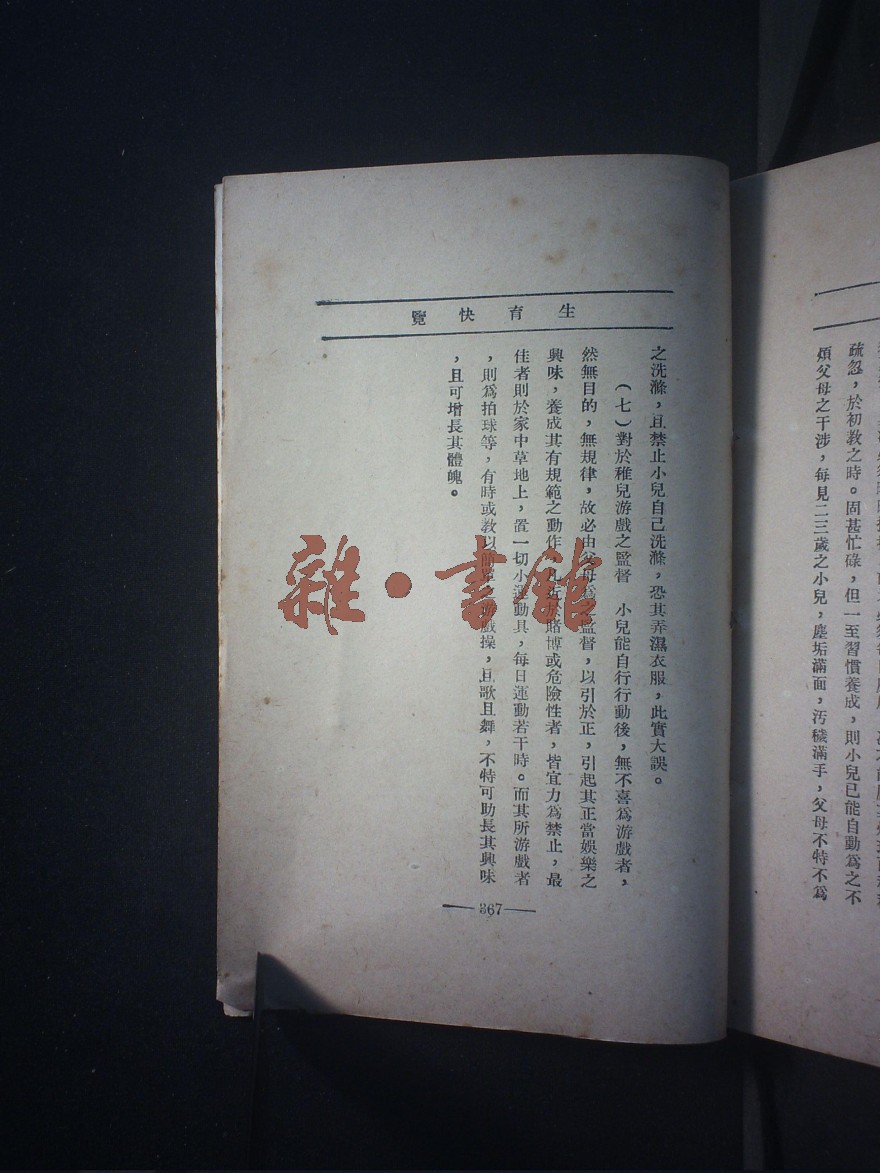 疏忽，於初教之時。固甚忙碌，但一至習慣養成，則小兒已能自動爲之不
煩父母之干涉，每見二三歲之小兒，塵垢滿面，汚穢滿手，父母不特不爲
生育快覽
之洗滌，且禁止小兒自己洗滌，恐其弄濕衣服，此實大誤。
（七）對於稚兒游戲之監督　小兒能自行行動後，無不喜爲游戲者，
然無目的，無規律，故必由父母爲之監督，以引於正，引起其正當娛樂之
興味，養成其有規範之動作，凡近於賭博或危險性者，皆宜力爲禁止，最
佳者則於家中草地上，置一切小運動具，每日運動若干時。而其所游戲者
，則爲拍球等，有時或教以簡單之遊戲操，且歌且舞，不特可助長其興味
，且可增長其體魄。
367
雜·書館